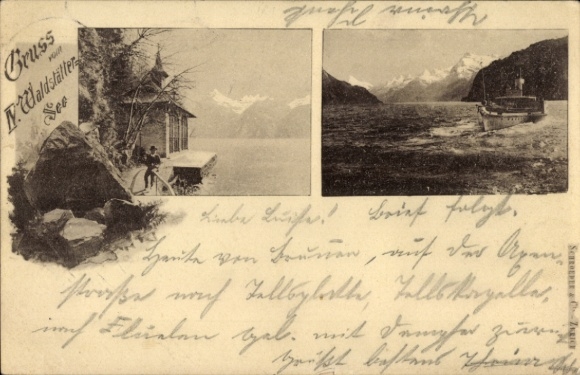 Gruss
vom
IV. Waldstätter
See
Liebe Luise! Brief folgt.
Heute von Brunnen, auf der Axen
straße nach Tellsplatte, Tellskapelle,
nach Flüelen gel. mit Dampfer zurück
Grüßt bestens